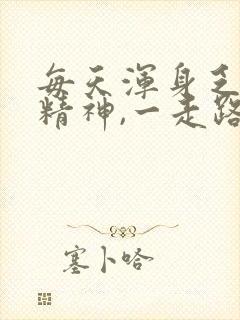 每天渾身乏
精神,一走路
塞卜哈